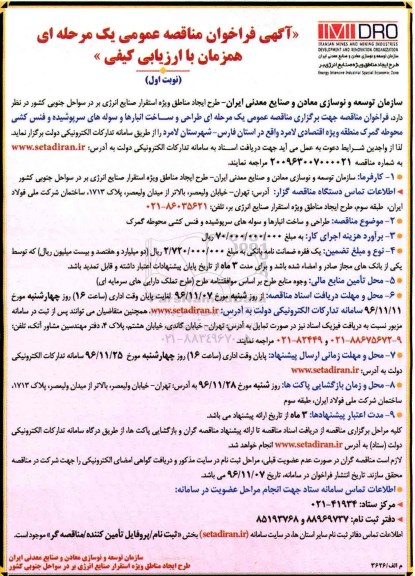 IMIDRO
IRANIAN MINES AND MINING INDUSTRIES
DEVELOPMENT AND RENOVATION ORGANIZATION
سازمان توسعه و نوسازی معادن و صنایع معدنی ایران
طرح ایجاد مناطق ویژه صنایع انرژی بر
Energy Intensive Industrial Special Economic Zone
«آگهی فراخوان مناقصه عمومی یک مرحله ای
همزمان با ارزیابی کیفی »
(نوبت اول)
سازمان توسعه و نوسازی معادن و صنایع معدنی ایران- طرح ایجاد مناطق ویژه استقرار صنایع انرژی بر در سواحل جنوبی کشور در نظر
دارد، فراخوان مناقصه جهت برگزاری مناقصه عمومی یک مرحله ای طراحی و ساخت انبارها و سوله های سرپوشیده و فنس کشی
محوطه گمرک منطقه ویژه اقتصادی لامرد واقع در استان فارس- شهرستان لامرد را از طریق سامانه تدارکات الکترونیکی دولت برگزار نماید.
لذا از واجدین شرایط دعوت به عمل می آید جهت دریافت اسناد به سامانه تدارکات الکترونیکی دولت به آدرس: www.setadiran.ir
به شماره مناقصه ۲۰۰۹۶۳۰۰۷۰۰۰۰۲۱ مراجعه نمایند.
۱- کارفرما: سازمان توسعه و نوسازی معادن و صنایع معدنی ایران- طرح ایجاد مناطق ویژه استقرار صنایع انرژی بر در سواحل جنوبی کشور
اطلاعات تماس دستگاه مناقصه گزار: آدرس: تهران- خیابان ولیعصر، بالاتر از میدان ولیعصر، پلاک ۱۷۱۳، ساختمان شرکت ملی فولاد
ایران، طبقه سوم، طرح ایجاد مناطق ویژه استقرار صنایع انرژی بر، تلفن: ۸۶۰۳۵۶۲۱-۰۲۱
۲- موضوع مناقصه: طراحی و ساخت انبارها و سوله های سرپوشیده و فنس کشی محوطه گمرک
۳- برآورد هزینه اجرای کار: به مبلغ ۷۰/۰۰۰/۰۰۰/۰۰۰ ریال
۴- نوع و مبلغ تضمین: یک فقره ضمانت نامه بانکی به مبلغ ۲/۷۲۰/۰۰۰/۰۰۰ ریال (دو میلیارد و هفتصد و بیست میلیون ریال) که توسط
یکی از بانک های مجاز صادر و امضاء شده باشد و برای مدت ۳ ماه از تاریخ پایان پیشنهادات اعتبار داشته و قابل تمدید باشد.
۵- محل تأمین منابع مالی: وجوه منابع طرح بر اساس موافقتنامه طرح (طرح تملک دارایی های سرمایه ای)
۶- محل و مهلت دریافت اسناد مناقصه: از روز شنبه مورخ ۹۶/۱۱/۰۷ لغایت پایان وقت اداری (ساعت ۱۶) روز چهارشنبه مورخ
۹۶/۱۱/۱۱ سامانه تدارکات الکترونیکی دولت به آدرس: www.setadiran.ir، همچنین متقاضیان می توانند پس از ثبت در سامانه
مزبور نسبت به دریافت فیزیک اسناد نیز در صورت تمایل به آدرس: تهران- خیابان گاندی، خیابان هشتم، پلاک ۴، دفتر مهندسین مشاور آتک، تلفن:
۹-۸۸۶۷۵۶۷۲-۰۲۱ و ۸۲۴۴۹-۰۲۱ مراجعه نمایند.
۷- محل و مهلت زمانی ارسال پیشنهاد: پایان وقت اداری (ساعت ۱۶) روز چهارشنبه مورخ ۹۶/۱۱/۲۵ سامانه تدارکات الکترونیکی
دولت به آدرس: www.setadiran.ir
۸- محل و زمان بازگشایی پاکت ها: روز شنبه مورخ ۹۶/۱۱/۲۸ به آدرس: تهران- خیابان ولیعصر، بالاتر از میدان ولیعصر، پلاک ۱۷۱۳،
ساختمان شرکت ملی فولاد ایران، طبقه سوم
۹- مدت اعتبار پیشنهادها: ۳ ماه از تاریخ ارائه پیشنهاد می باشد.
کلیه مراحل برگزاری مناقصه از دریافت اسناد مناقصه تا ارائه پیشنهاد مناقصه گران و بازگشایی پاکت ها، از طریق درگاه سامانه تدارکات الکترونیکی
دولت (ستاد) به آدرس www.setadiran.ir انجام خواهد شد.
لازم است مناقصه گران در صورت عدم عضویت قبلی، مراحل ثبت نام در سایت مذکور و دریافت گواهی امضای الکترونیکی را جهت شرکت در مناقصه
محقق سازند. تاریخ انتشار فراخوان در سامانه، تاریخ ۹۶/۱۱/۰۷ می باشد.
اطلاعات تماس سامانه ستاد جهت انجام مراحل عضویت در سامانه:
مرکز ستاد: ۴۱۹۳۴-۰۲۱
دفتر ثبت نام: ۸۸۹۶۹۷۳۷ و ۸۵۱۹۳۷۶۸
اطلاعات تماس دفاتر ثبت نام سایر استان ها، در سایت سامانه (www.setadiran.ir) بخش «ثبت نام/پروفایل تأمین کننده/مناقصه گر» موجود است.
سازمان توسعه و نوسازی معادن و صنایع معدنی ایران
طرح ایجاد مناطق ویژه استقرار صنایع انرژی بر در سواحل جنوبی کشور
م الف/۳۶۲۶